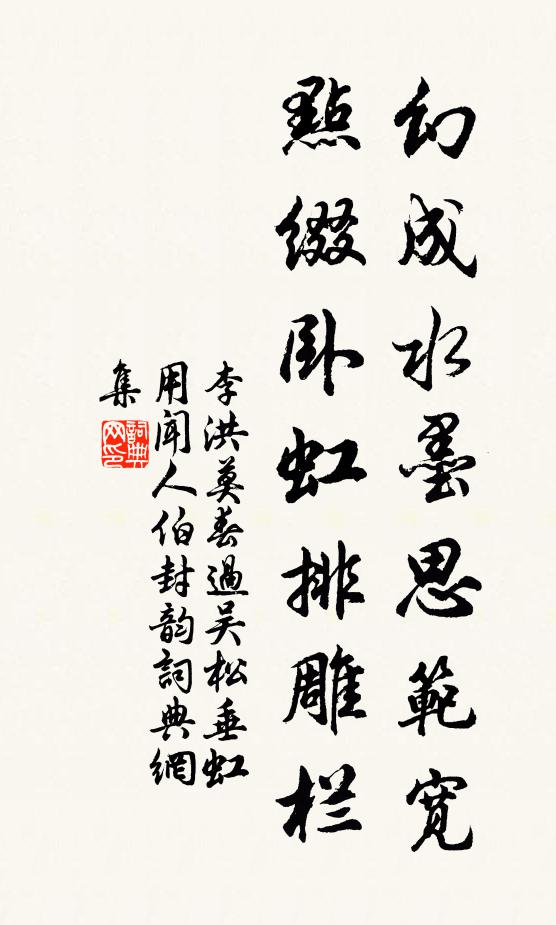 幻成水墨思範寬
點綴卧虹排雕栏
李洪莫春過吴松垂虹
用聞人伯封韵詞典網
集
詞典网印